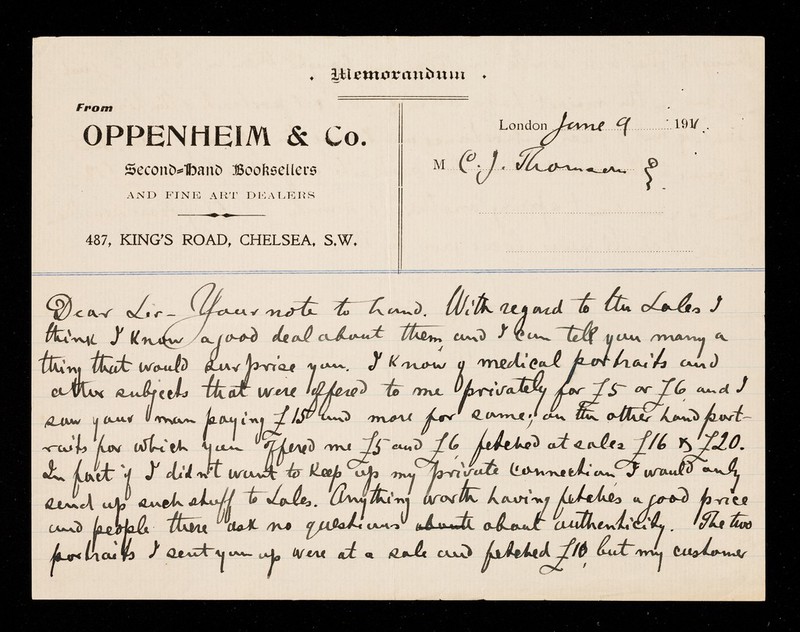 . Memorandum .
From
OPPENHEIM & Co.
Second=Hand Booksellers
AND FINE ART DEALERS
487, KING'S ROAD, CHELSEA, S.W.
London June 9 1911.
M C. J. Thomson
Dear Sir - Your note to hand. With regard to the Sales I
think I know a good deal about them and I can tell you many a
thing that would surprise you. I know of medical portraits and
other subjects that were offered to me privately for £5 or £6 and I
saw your man paying £15 and more for same; on the other hand port-
raits for which you offered me £5 and £6 fetched at sales £16 & £20.
In fact if I didn't want to keep up my private connection I would only
send up such stuff to Sales. Anything worth having fetches a good price
and people there ask no questions about authenticity. The two
portraits I sent you up were at a sale and fetched £10 but my customer